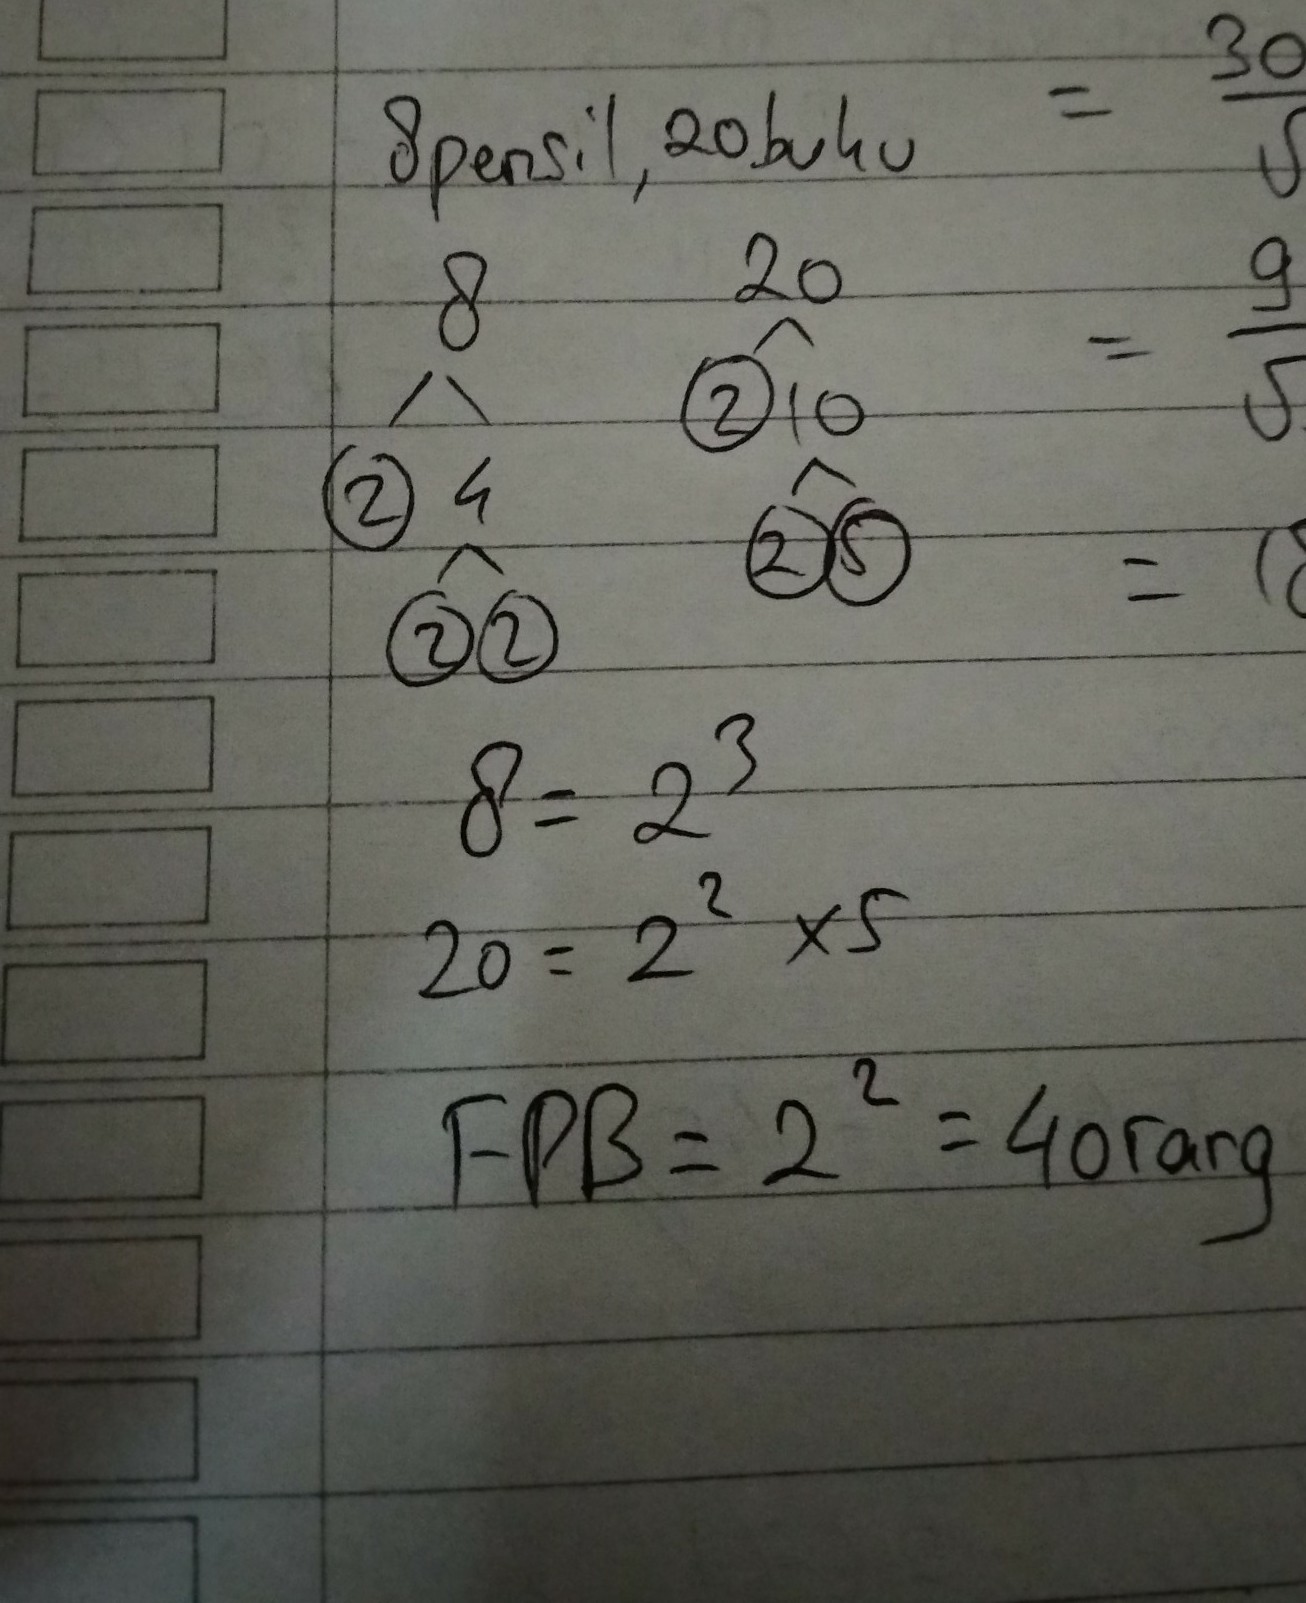 8 pensil, 20 buku
8 20
2 10
2 4
2 5
2 2
8 = 2³
20 = 2² x 5
FPB = 2² = 4 orang
= 30/5
= 9/5
=